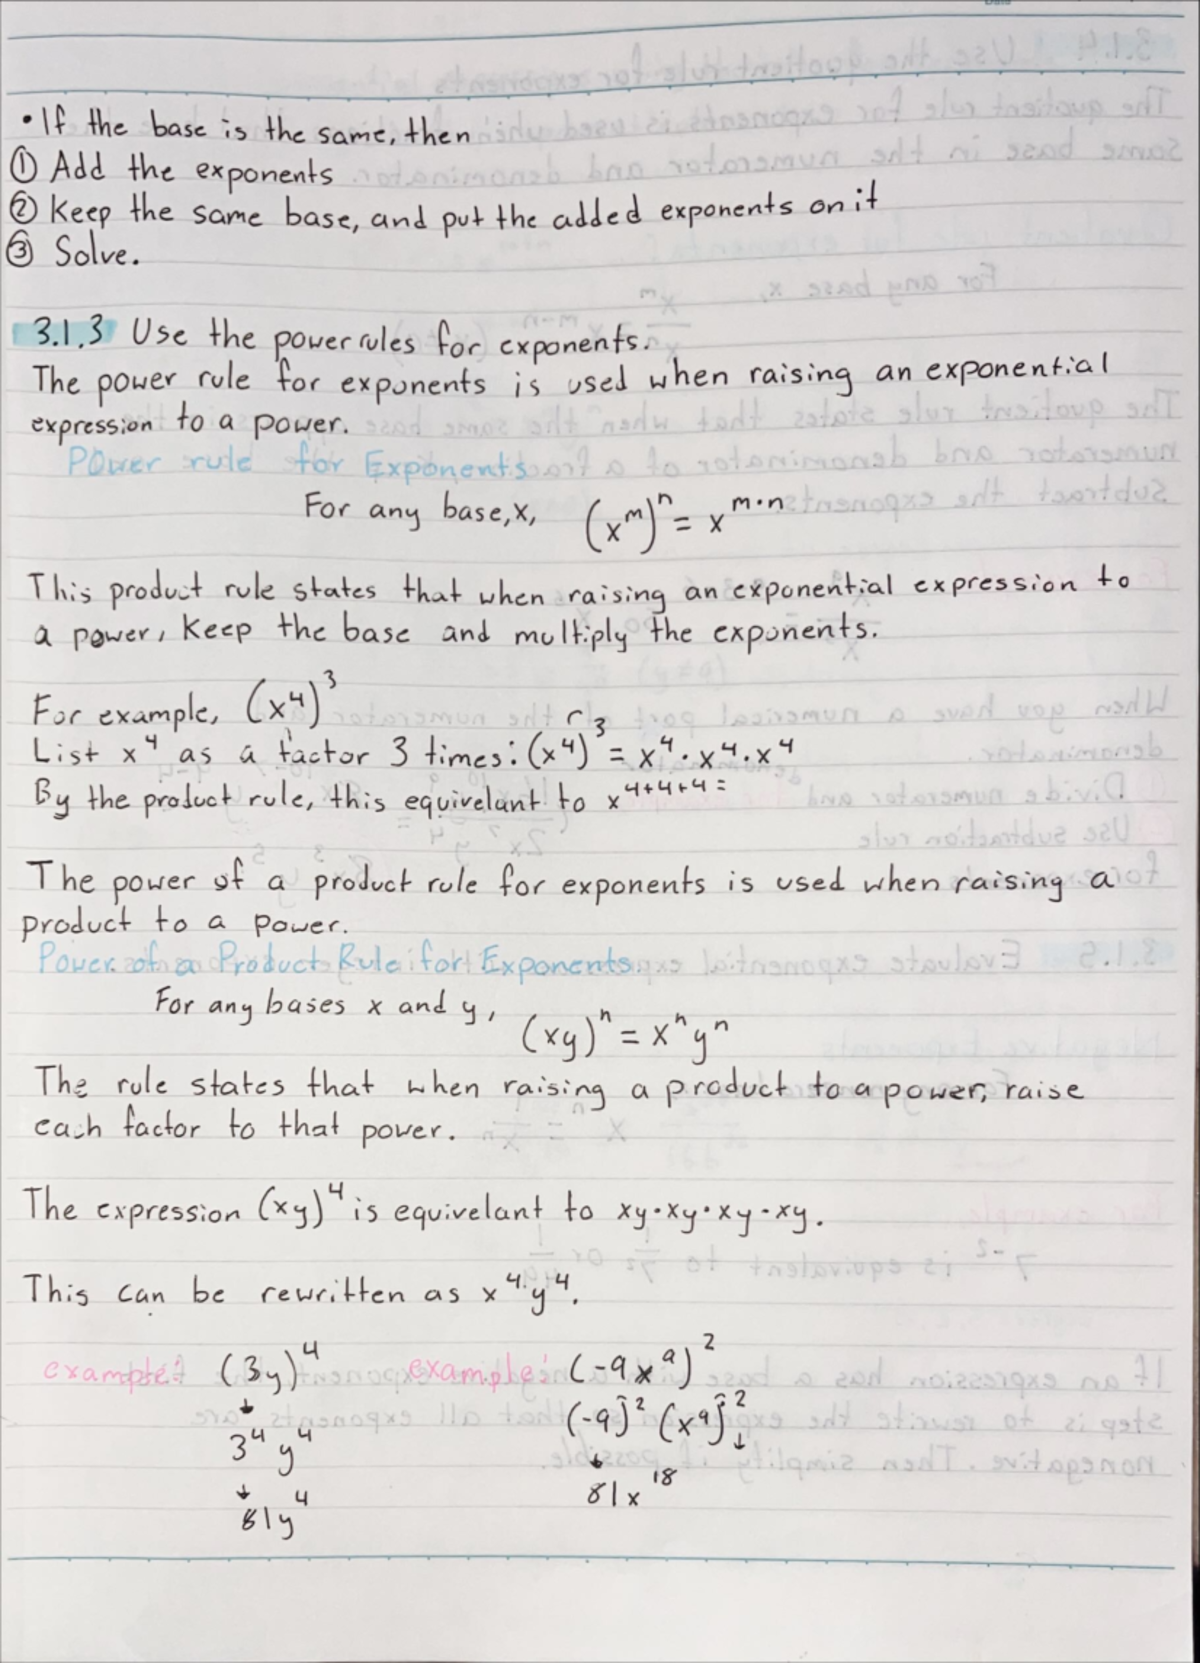 • If the base is the same, then
① Add the exponents
② Keep the same base, and put the added exponents on it
③ Solve.
3.1.3 Use the power rules for exponents.
The power rule for exponents is used when raising an exponential
expression to a power.
Power rule for Exponents
For any base, x, (x^m)^n = x^m·n
This product rule states that when raising an exponential expression to
a power, Keep the base and multiply the exponents.
For example, (x^4)^3
List x^4 as a factor 3 times: (x^4)^3 = x^4 · x^4 · x^4
By the product rule, this equivelant to x^4+4+4=
The power of a product rule for exponents is used when raising a
product to a power.
Power of a Product Rule for Exponents.
For any bases x and y, (xy)^n = x^n y^n
The rule states that when raising a product to a power, raise
each factor to that power.
The expression (xy)^4 is equivelant to xy·xy·xy·xy.
This can be rewritten as x^4·y^4.
example: (3y)^4 example: (-9x^9)^2
↓ (-9)^2 (x^9)^2
3^4 y^4 ↓ ↓
↓ 81x^18
81y^4